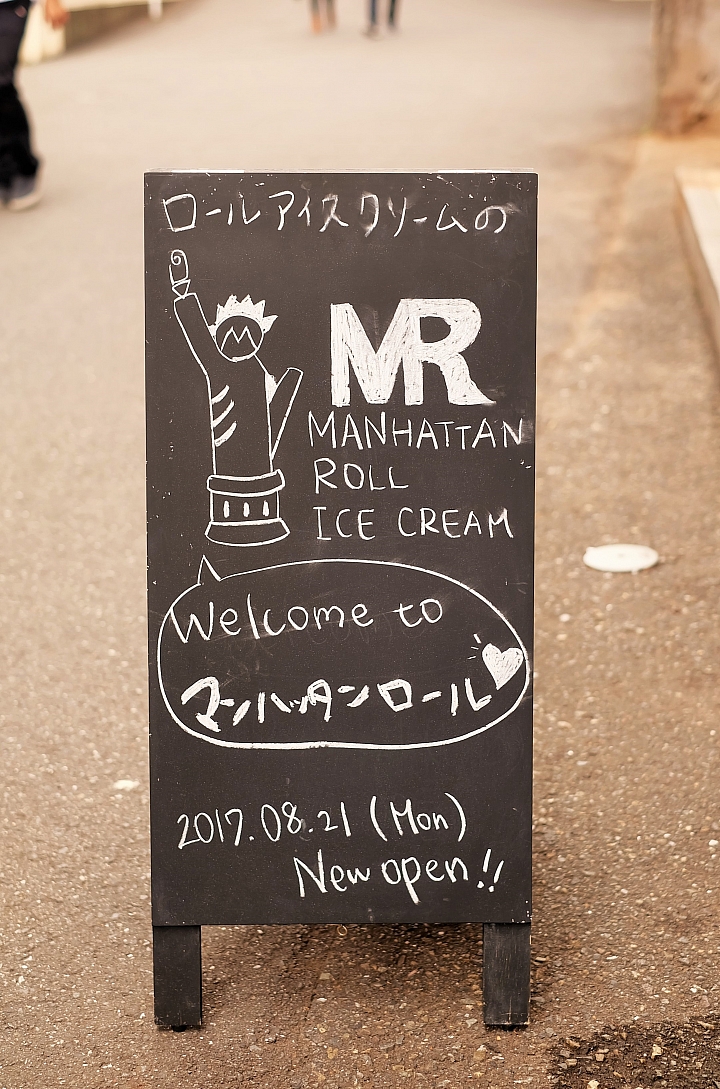 ロールアイスクリームの
MR
MANHATTAN
ROLL
ICE CREAM
Welcome to
マンハッタンロール
2017.08.21 (Mon)
New open!!